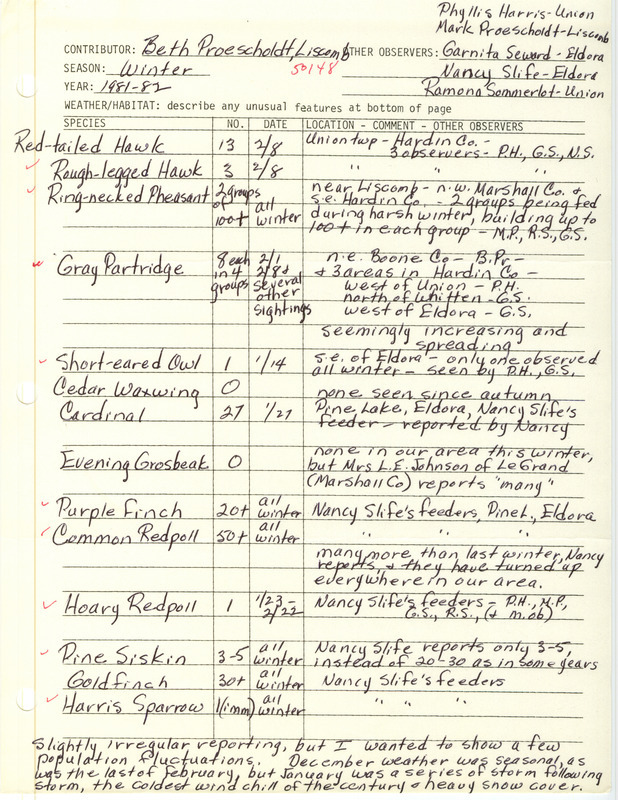 Phyllis Harris-Union
Mark Proescholdt-Liscomb
CONTRIBUTOR: Beth Proescholdt, Liscomb OTHER OBSERVERS: Garnita Seward - Eldora
SEASON: Winter 50148 Nancy Slife - Eldora
YEAR: 1981-82 Ramona Sommerlot-Union
WEATHER/HABITAT: describe any unusual features at bottom of page
SPECIES NO. DATE LOCATION - COMMENT - OTHER OBSERVERS
Red-tailed Hawk 13 2/8 Union twp - Hardin Co. -
3 observers - P.H., G.S., N.S.
Rough-legged Hawk 3 2/8 " " "
Ring-necked Pheasant 2 groups near Liscomb - n.w. Marshall Co. &
of all s.e. Hardin Co. - 2 groups being fed
100+ winter during harsh winter, building up to
100+ in each group - M.P., R.S., G.S.
Gray Partridge 8 each 2/1 n.e. Boone Co - B.Pr -
in 4 2/8 & & 3 areas in Hardin Co -
groups several west of Union - P.H.
other north of Whitten - G.S.
sightings west of Eldora - G.S.
seemingly increasing and
spreading
Short-eared Owl 1 1/14 s.e. of Eldora - only one observed
all winter - seen by P.H., G.S.
Cedar Waxwing 0 none seen since autumn
Cardinal 27 1/27 Pine Lake, Eldora, Nancy Slife's
feeder - reported by Nancy
Evening Grosbeak 0 none in our area this winter,
but Mrs L.E. Johnson of LeGrand
(Marshall Co) reports "many"
Purple Finch 20+ all winter Nancy Slife's feeders, Pine L., Eldora
Common Redpoll 50+ all winter " " "
many more than last winter, Nancy
reports, & they have turned up
everywhere in our area.
Hoary Redpoll 1 1/23 - 2/22 Nancy Slife's feeders - P.H., M.P.,
G.S., R.S., (& m.ob)
Pine Siskin 3-5 all winter Nancy Slife reports only 3-5,
instead of 20-30 as in some years
Goldfinch 30+ all winter Nancy Slife's feeders
Harris Sparrow 1(imm) all winter " " "
Slightly irregular reporting, but I wanted to show a few
population fluctuations. December weather was seasonal, as
was the last of February, but January was a series of storm following
storm, the coldest wind chill of the century & heavy snow cover.